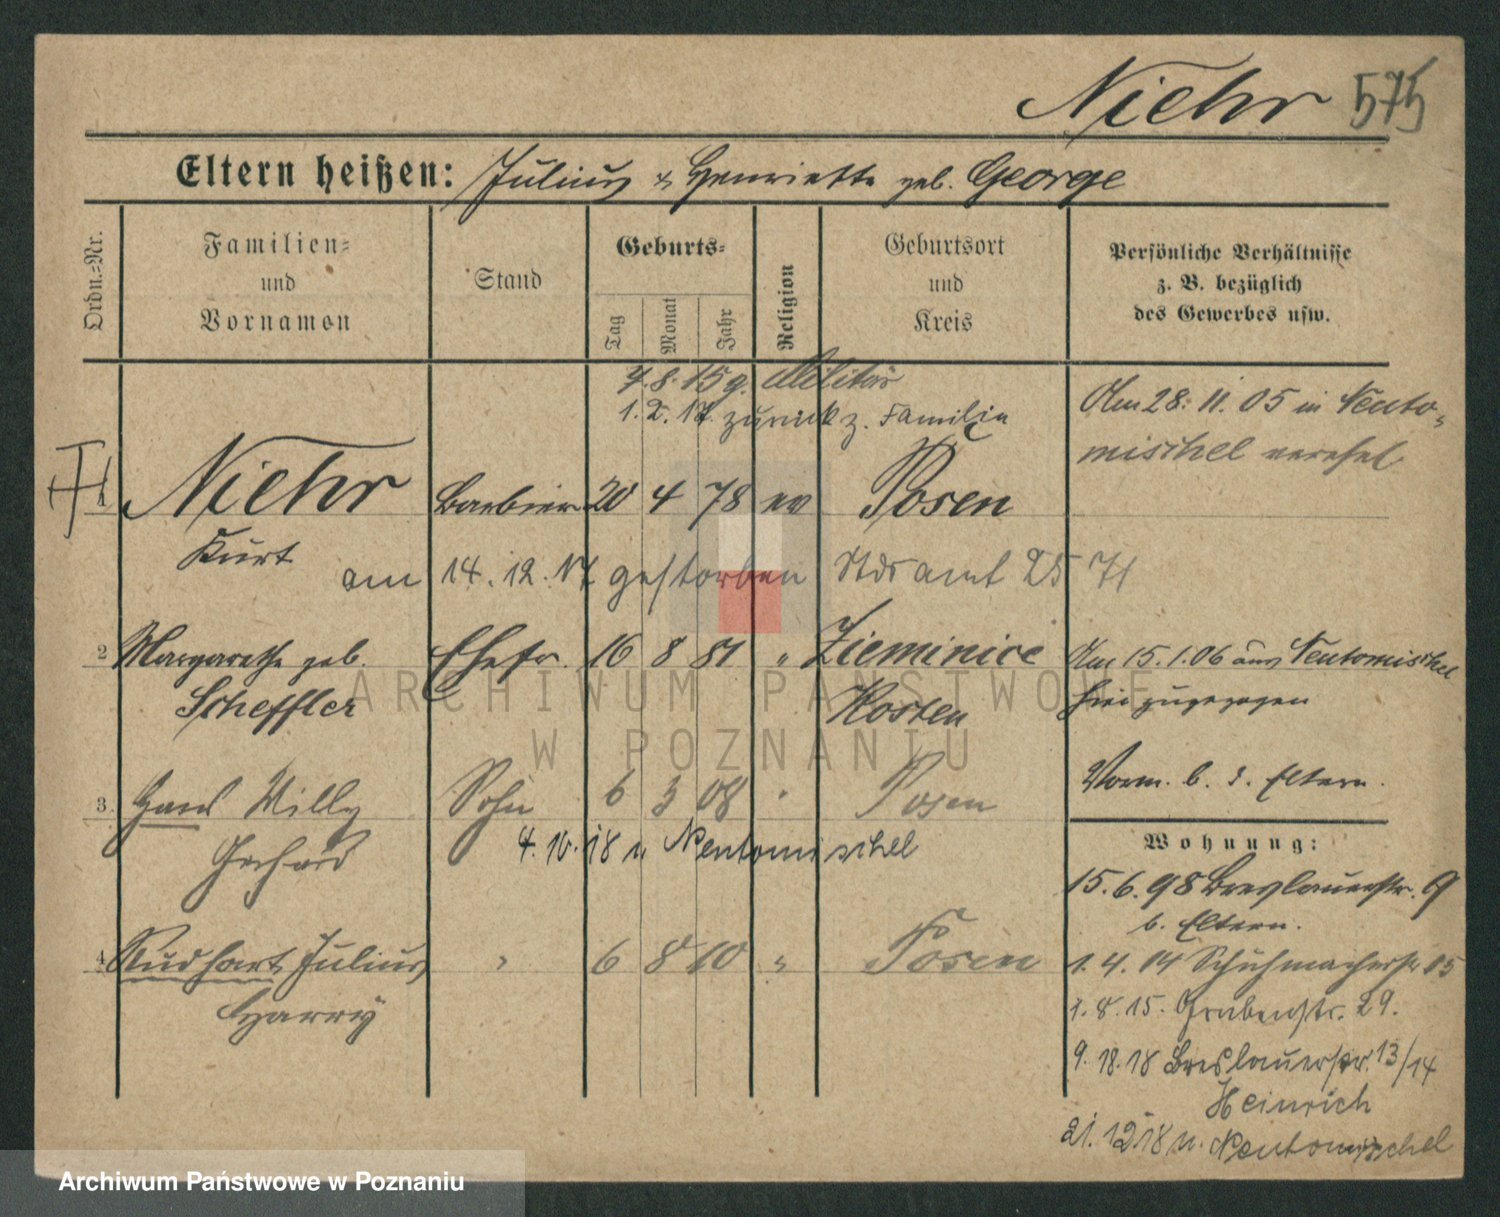 Niehr 575
Eltern heißen: Julius & Henriette geb. George
Ordn.=Nr.
Familien=
und
Vornamen
Stand
Geburts=
Tag
Monat
Jahr
Religion
Geburtsort
und
Kreis
Persönliche Verhältnisse
z. B. bezüglich
des Gewerbes usw.
7. 8. 15 g. Militär
1. 2. 17. zurück z. Familie
Am 28. 11. 05 in Neuto-
mischel verehel
1 Niehr Barbier 20 4 78 ev Posen
Kurt
am 14. 12. 17 gestorben Stdsamt 25 71
2 Margarethe geb. Ehefr. 16 8 81 " Zieminice
Scheffler Kosten
Am 15. 1. 06 aus Neutomischel
hier zugezogen
3. Hans Willy Sohn 6 3 08 " Posen
Gerhard
4. 10. 18 n. Neutomischel
Vorm. b. d. Eltern.
4 Rudhart Julius " 6 8 10 " Posen
Harry
Wohnung:
15. 6. 98 Breslauerstr. 9
b. Eltern.
1. 4. 04 Schuhmacherstr 15
1. 8. 15. Grabenstr. 29.
9. 18. 18 Breslauerstr. 13/14
Heinrich
21. 12 18 n. Neutomischel
ARCHIWUM PAŃSTWOWE
W POZNANIU
Archiwum Państwowe w Poznaniu